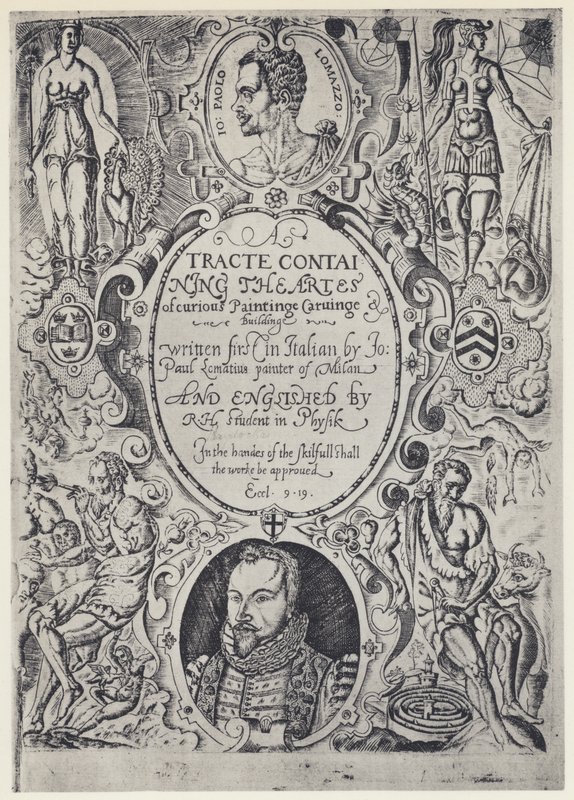 IO: PAOLO LOMAZZO:
A
TRACTE CONTAI
NJNG THE ARTES
of curious Paintinge Caruinge &
building
written first in Italian by Jo:
Paul Lomatius painter of Milan
AND ENGLISHED By
R.H. student in Physik
In the handes of the skilfull shall
the worke be approued
Eccl. 9.19.